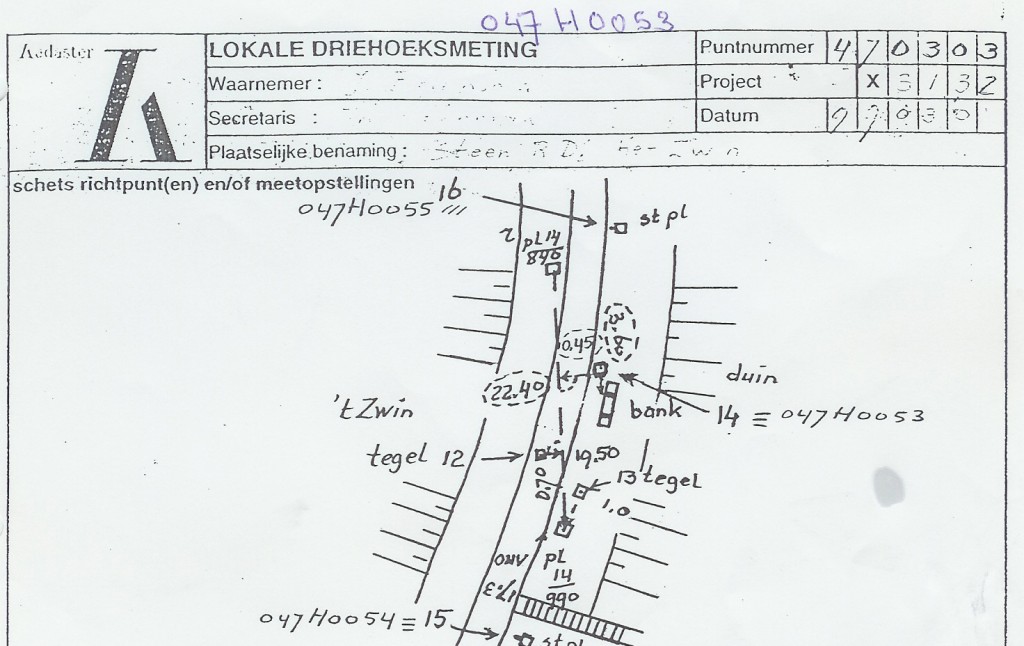 047H0053
Kadaster
LOKALE DRIEHOEKSMETING
Puntnummer 470303
Waarnemer :
Project X3132
Secretaris :
Datum
Plaatselijke benaming : Steen R.D. te Zwin
schets richtpunt(en) en/of meetopstellingen
16
047H0055
st pl
pl 14
840
0.45
duin
22.40
't Zwin
bank
14 ≡ 047H0053
tegel 12
19.50
0.70
13 tegel
1.0
pl
14
990
047H0054 ≡ 15
st pl